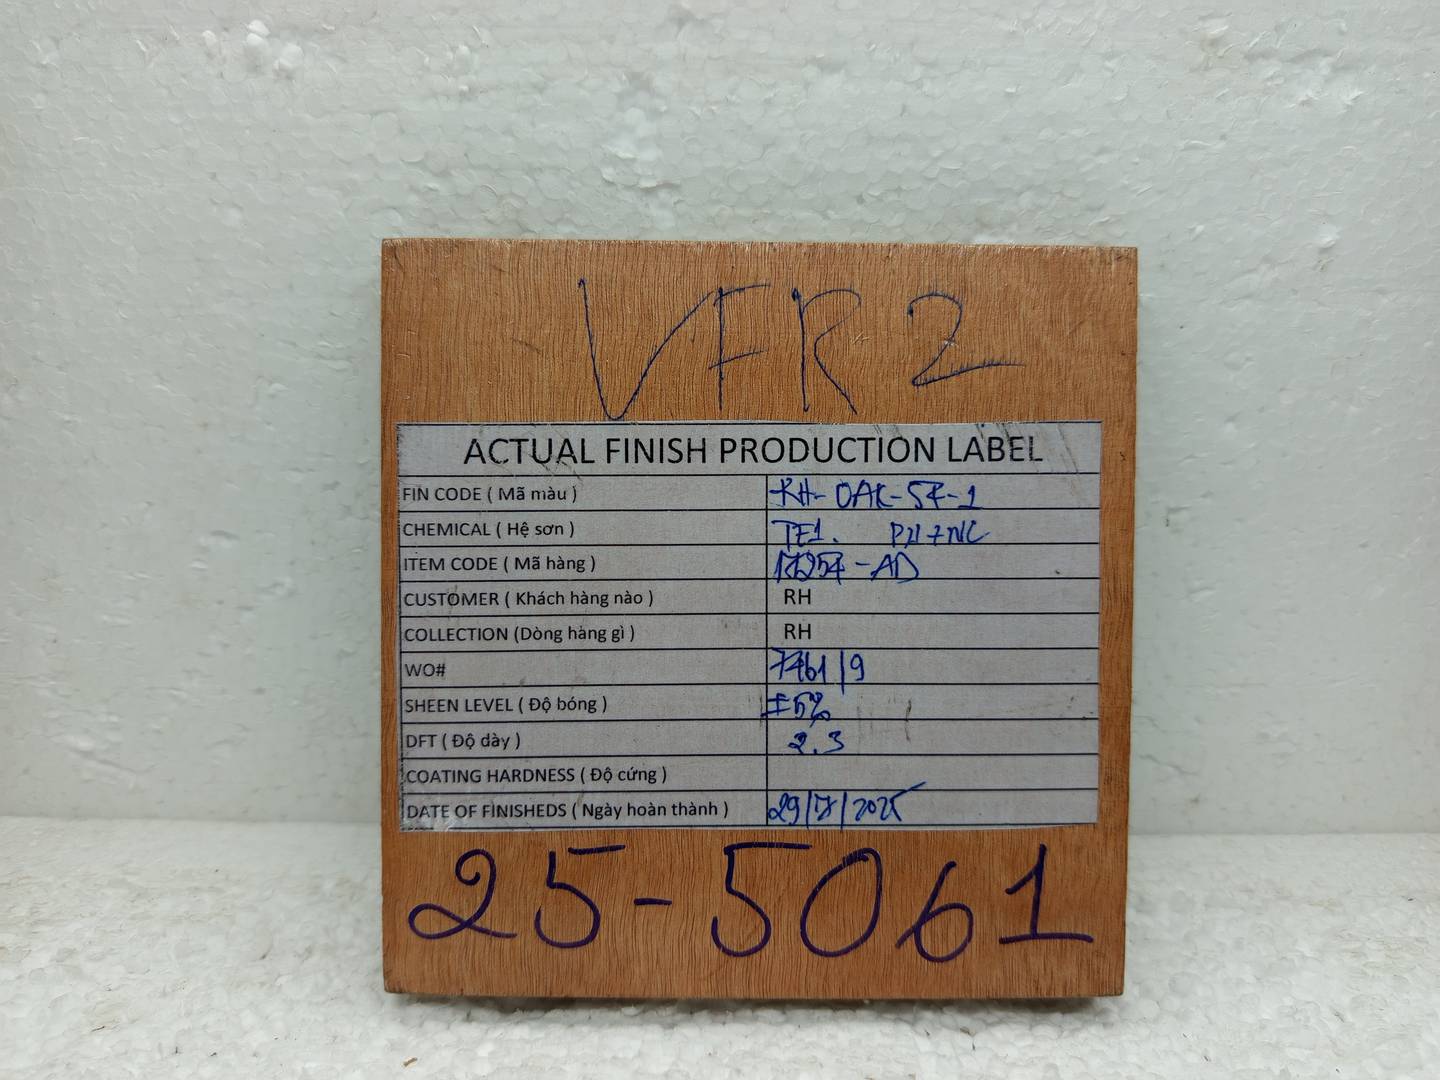 VFR 2
ACTUAL FINISH PRODUCTION LABEL
FIN CODE ( Mã màu ) RH-OAK-SF-1
CHEMICAL ( Hệ sơn ) TE1. PU+NC
ITEM CODE ( Mã hàng ) -AD
CUSTOMER ( Khách hàng nào ) RH
COLLECTION (Dòng hàng gì ) RH
WO# 7461/9
SHEEN LEVEL ( Độ bóng ) ±5%
DFT ( Độ dày ) 2.3
COATING HARDNESS ( Độ cứng )
DATE OF FINISHEDS ( Ngày hoàn thành ) 29/7/2025
25-5061